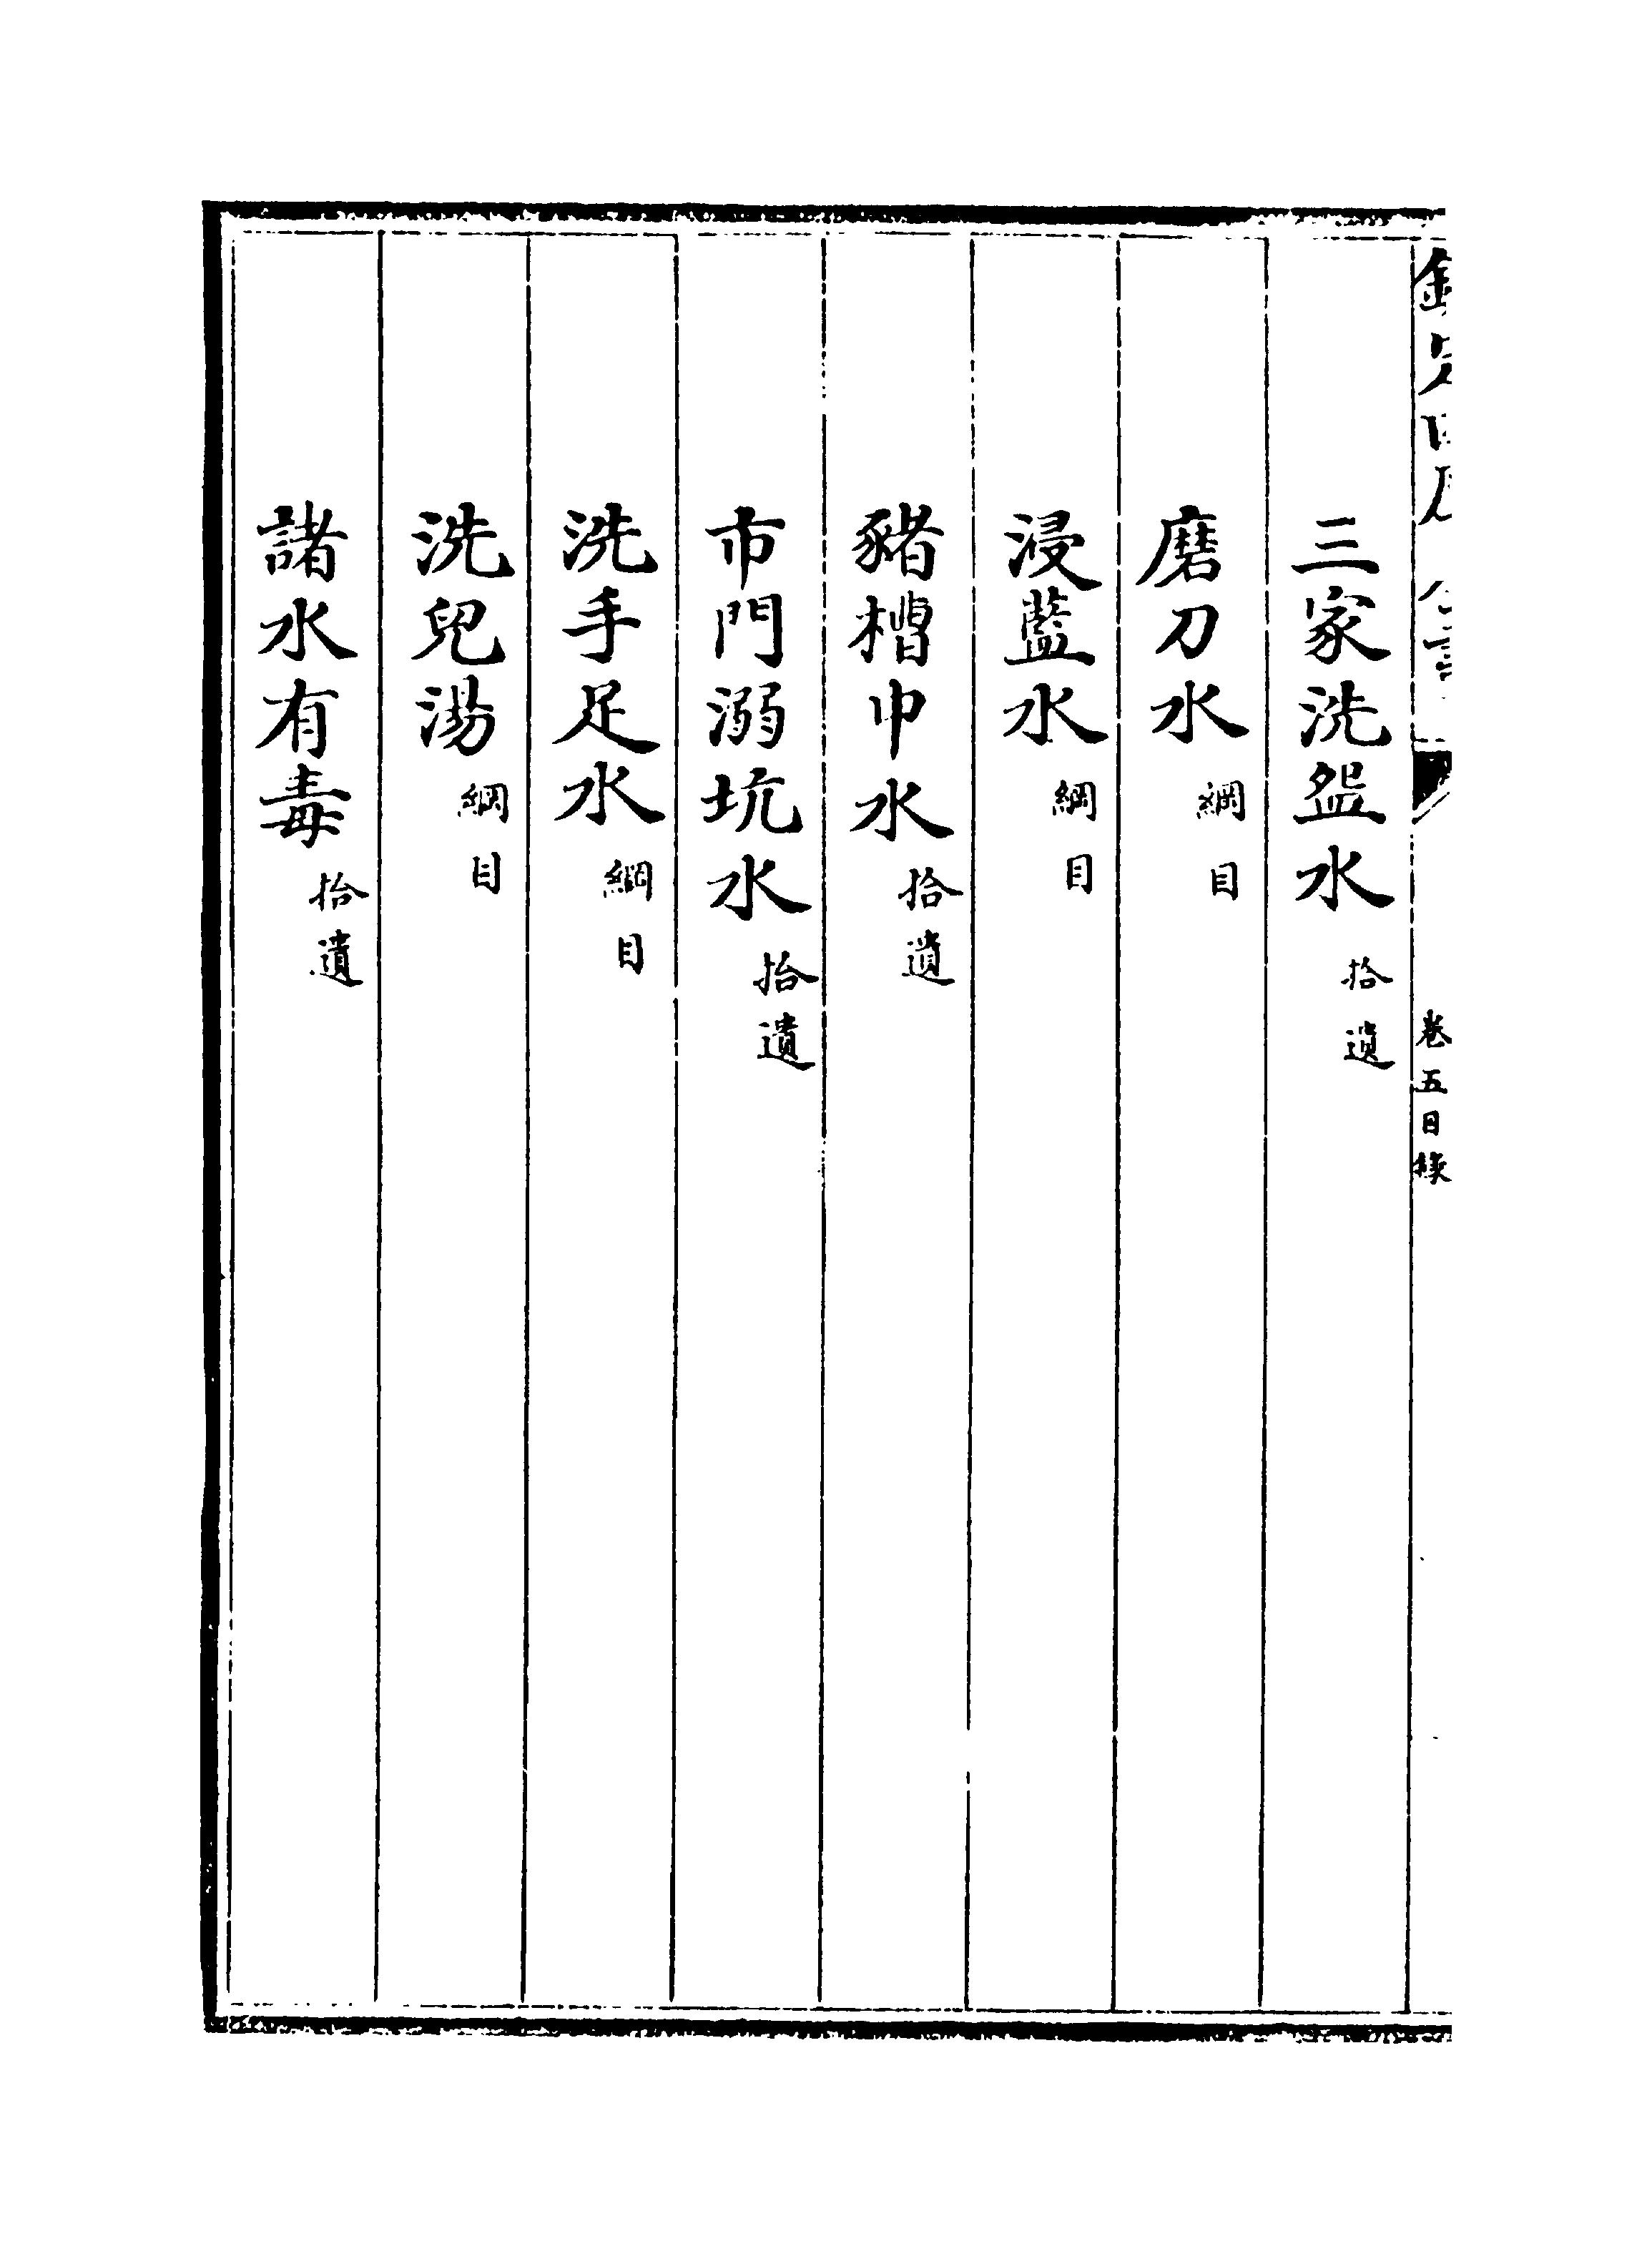 三家洗盌水 拾遺
磨刀水 綱目
浸藍水 綱目
豬槽巾水 拾遺
市門溺坑水 拾遺
洗手足水 綱目
洗兒湯 綱目
諸水有毒 拾遺
卷五目錄